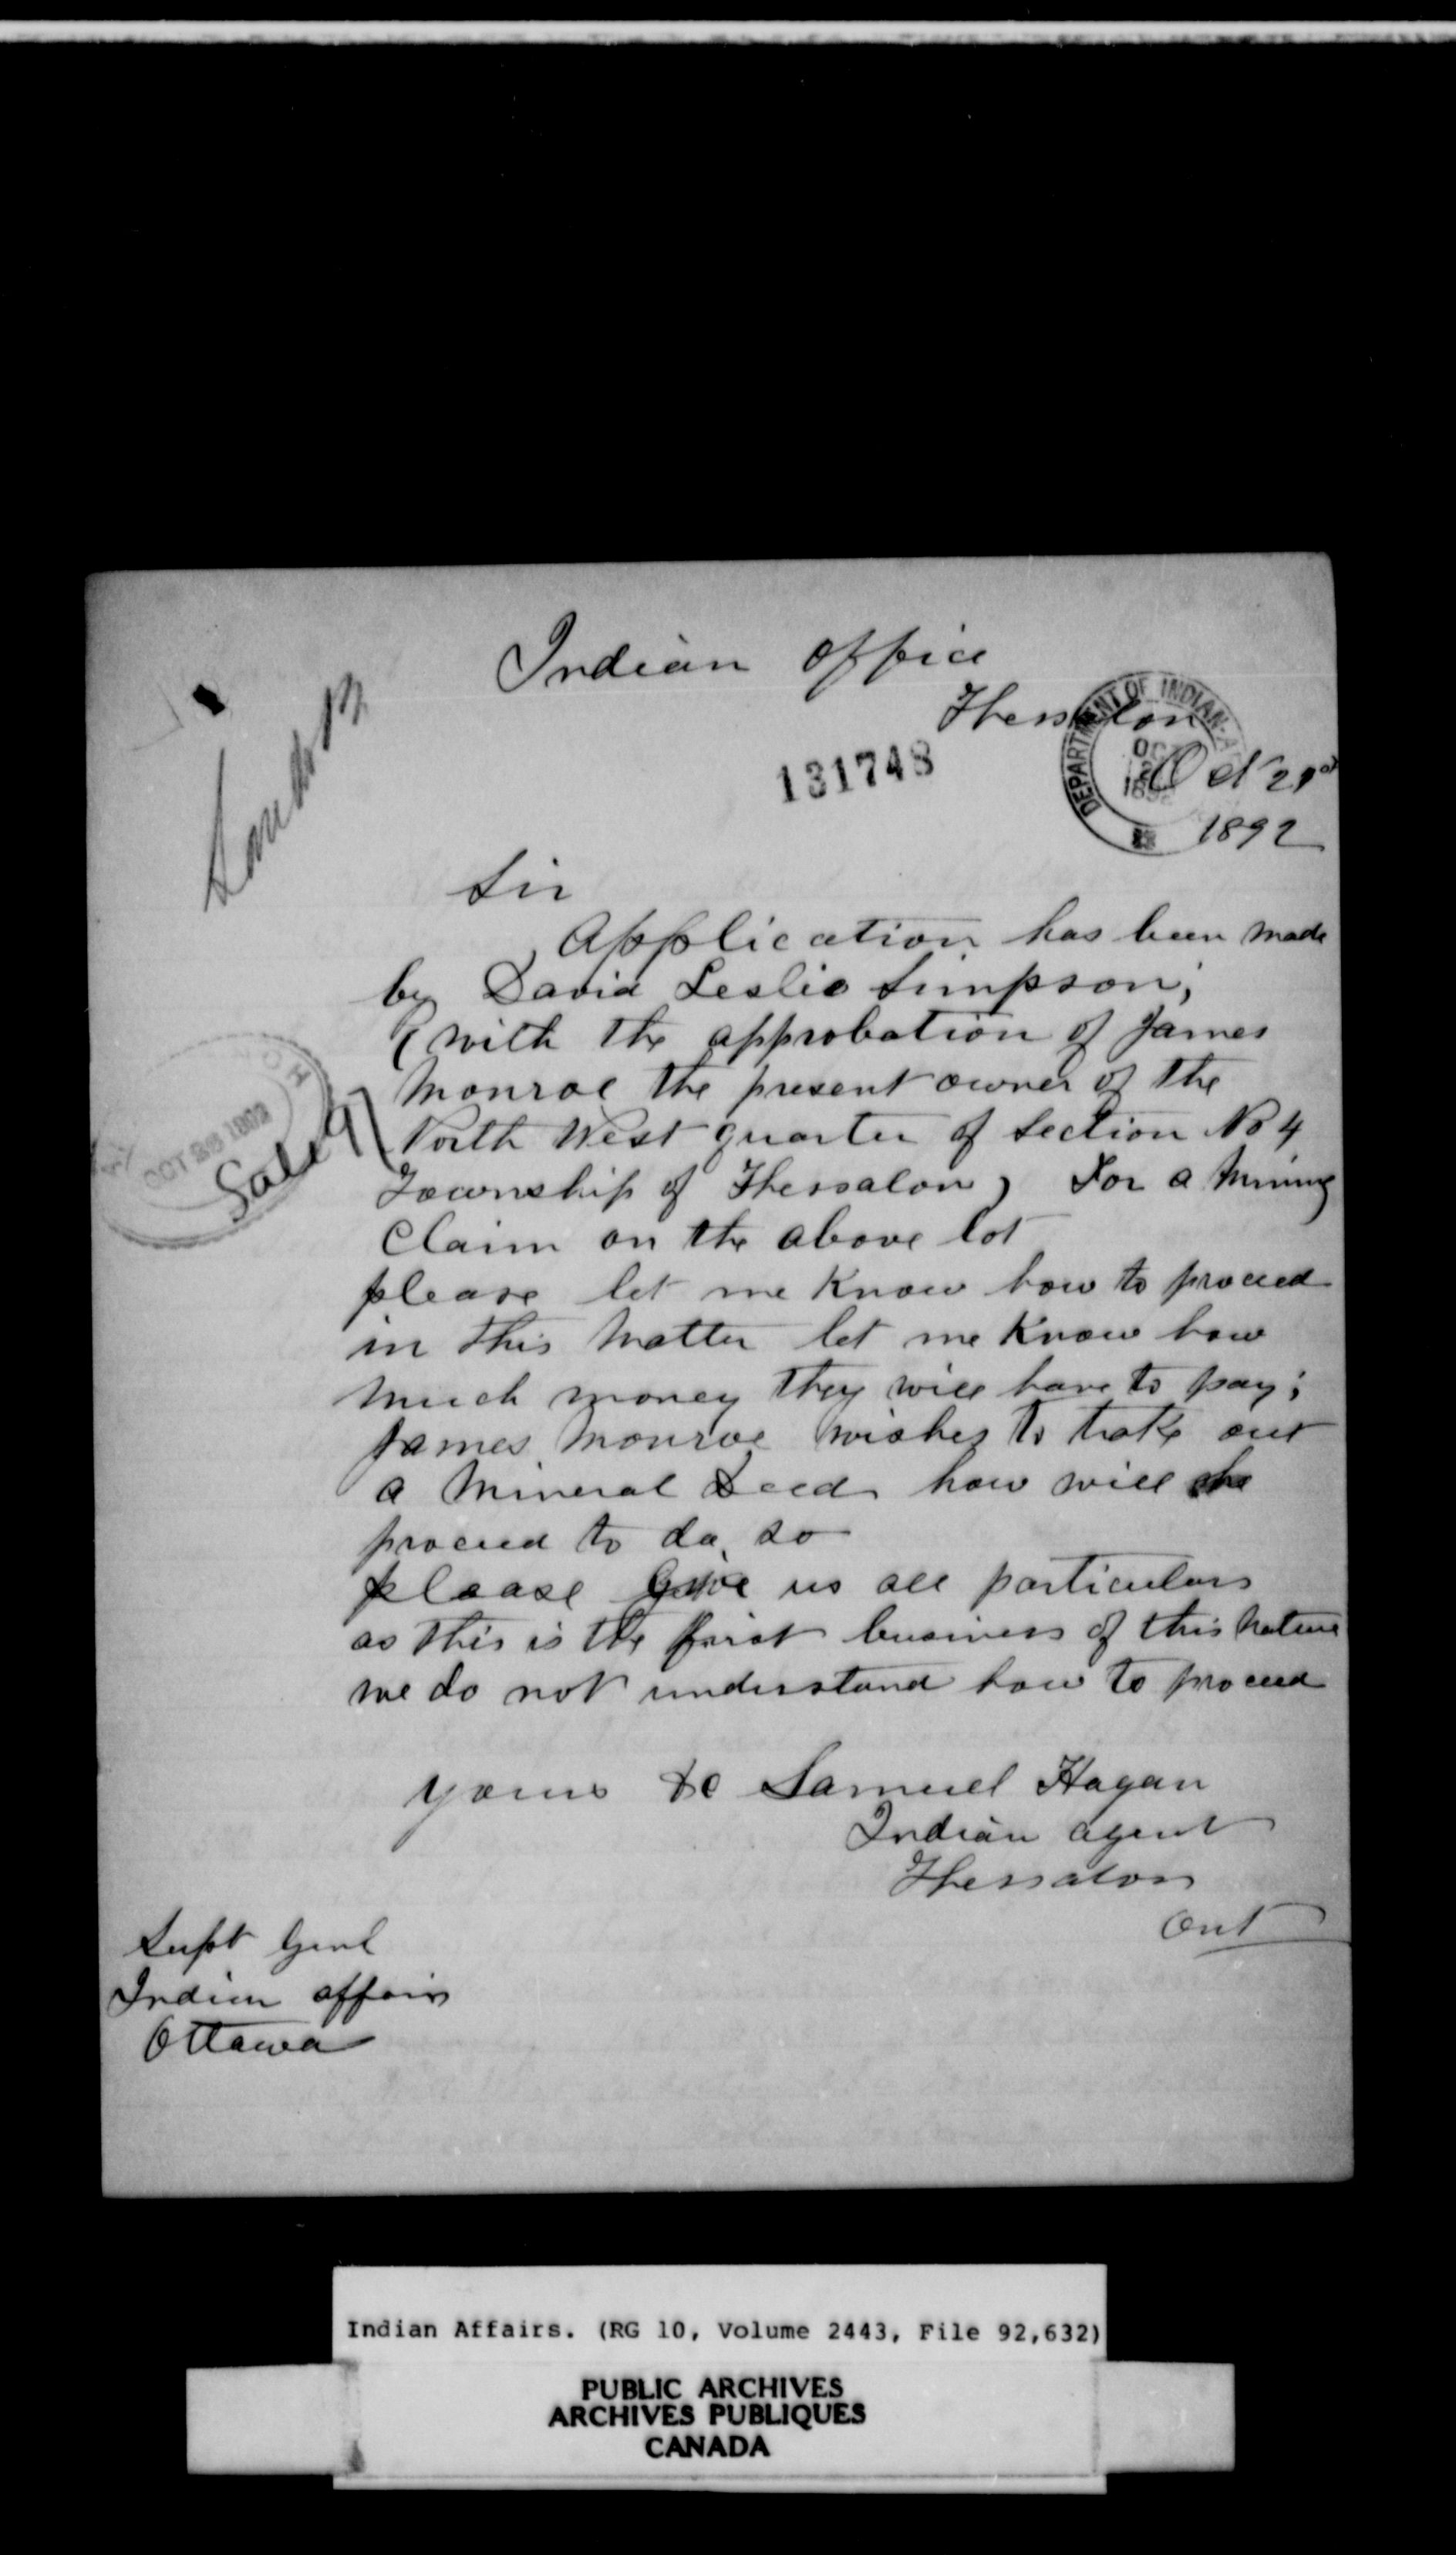 Indian Office
Thessalon
131748
DEPARTMENT OF INDIAN
OCT
1892
Oct 21st
1892
Sir
Application has been made
by David Leslie Simpson;
(with the approbation of James
Monroe the present owner of the
North West quarter of Section No 4
Township of Thessalon) For a Mining
Claim on the above lot
please let me Know how to proceed
in this Matter let me Know how
Much money they will have to pay;
James Monroe wishes to take out
a Mineral Deed how will he
proceed to do so
please Give us all particulars
as this is the first business of this Nature
we do not understand how to proceed
yours &c Samuel Hagan
Indian agent
Thessalon
Ont
Supt Genl
Indian affairs
Ottawa
OCT 26 1892
Sale 97
Indian Affairs. (RG 10, Volume 2443, File 92,632)
PUBLIC ARCHIVES
ARCHIVES PUBLIQUES
CANADA